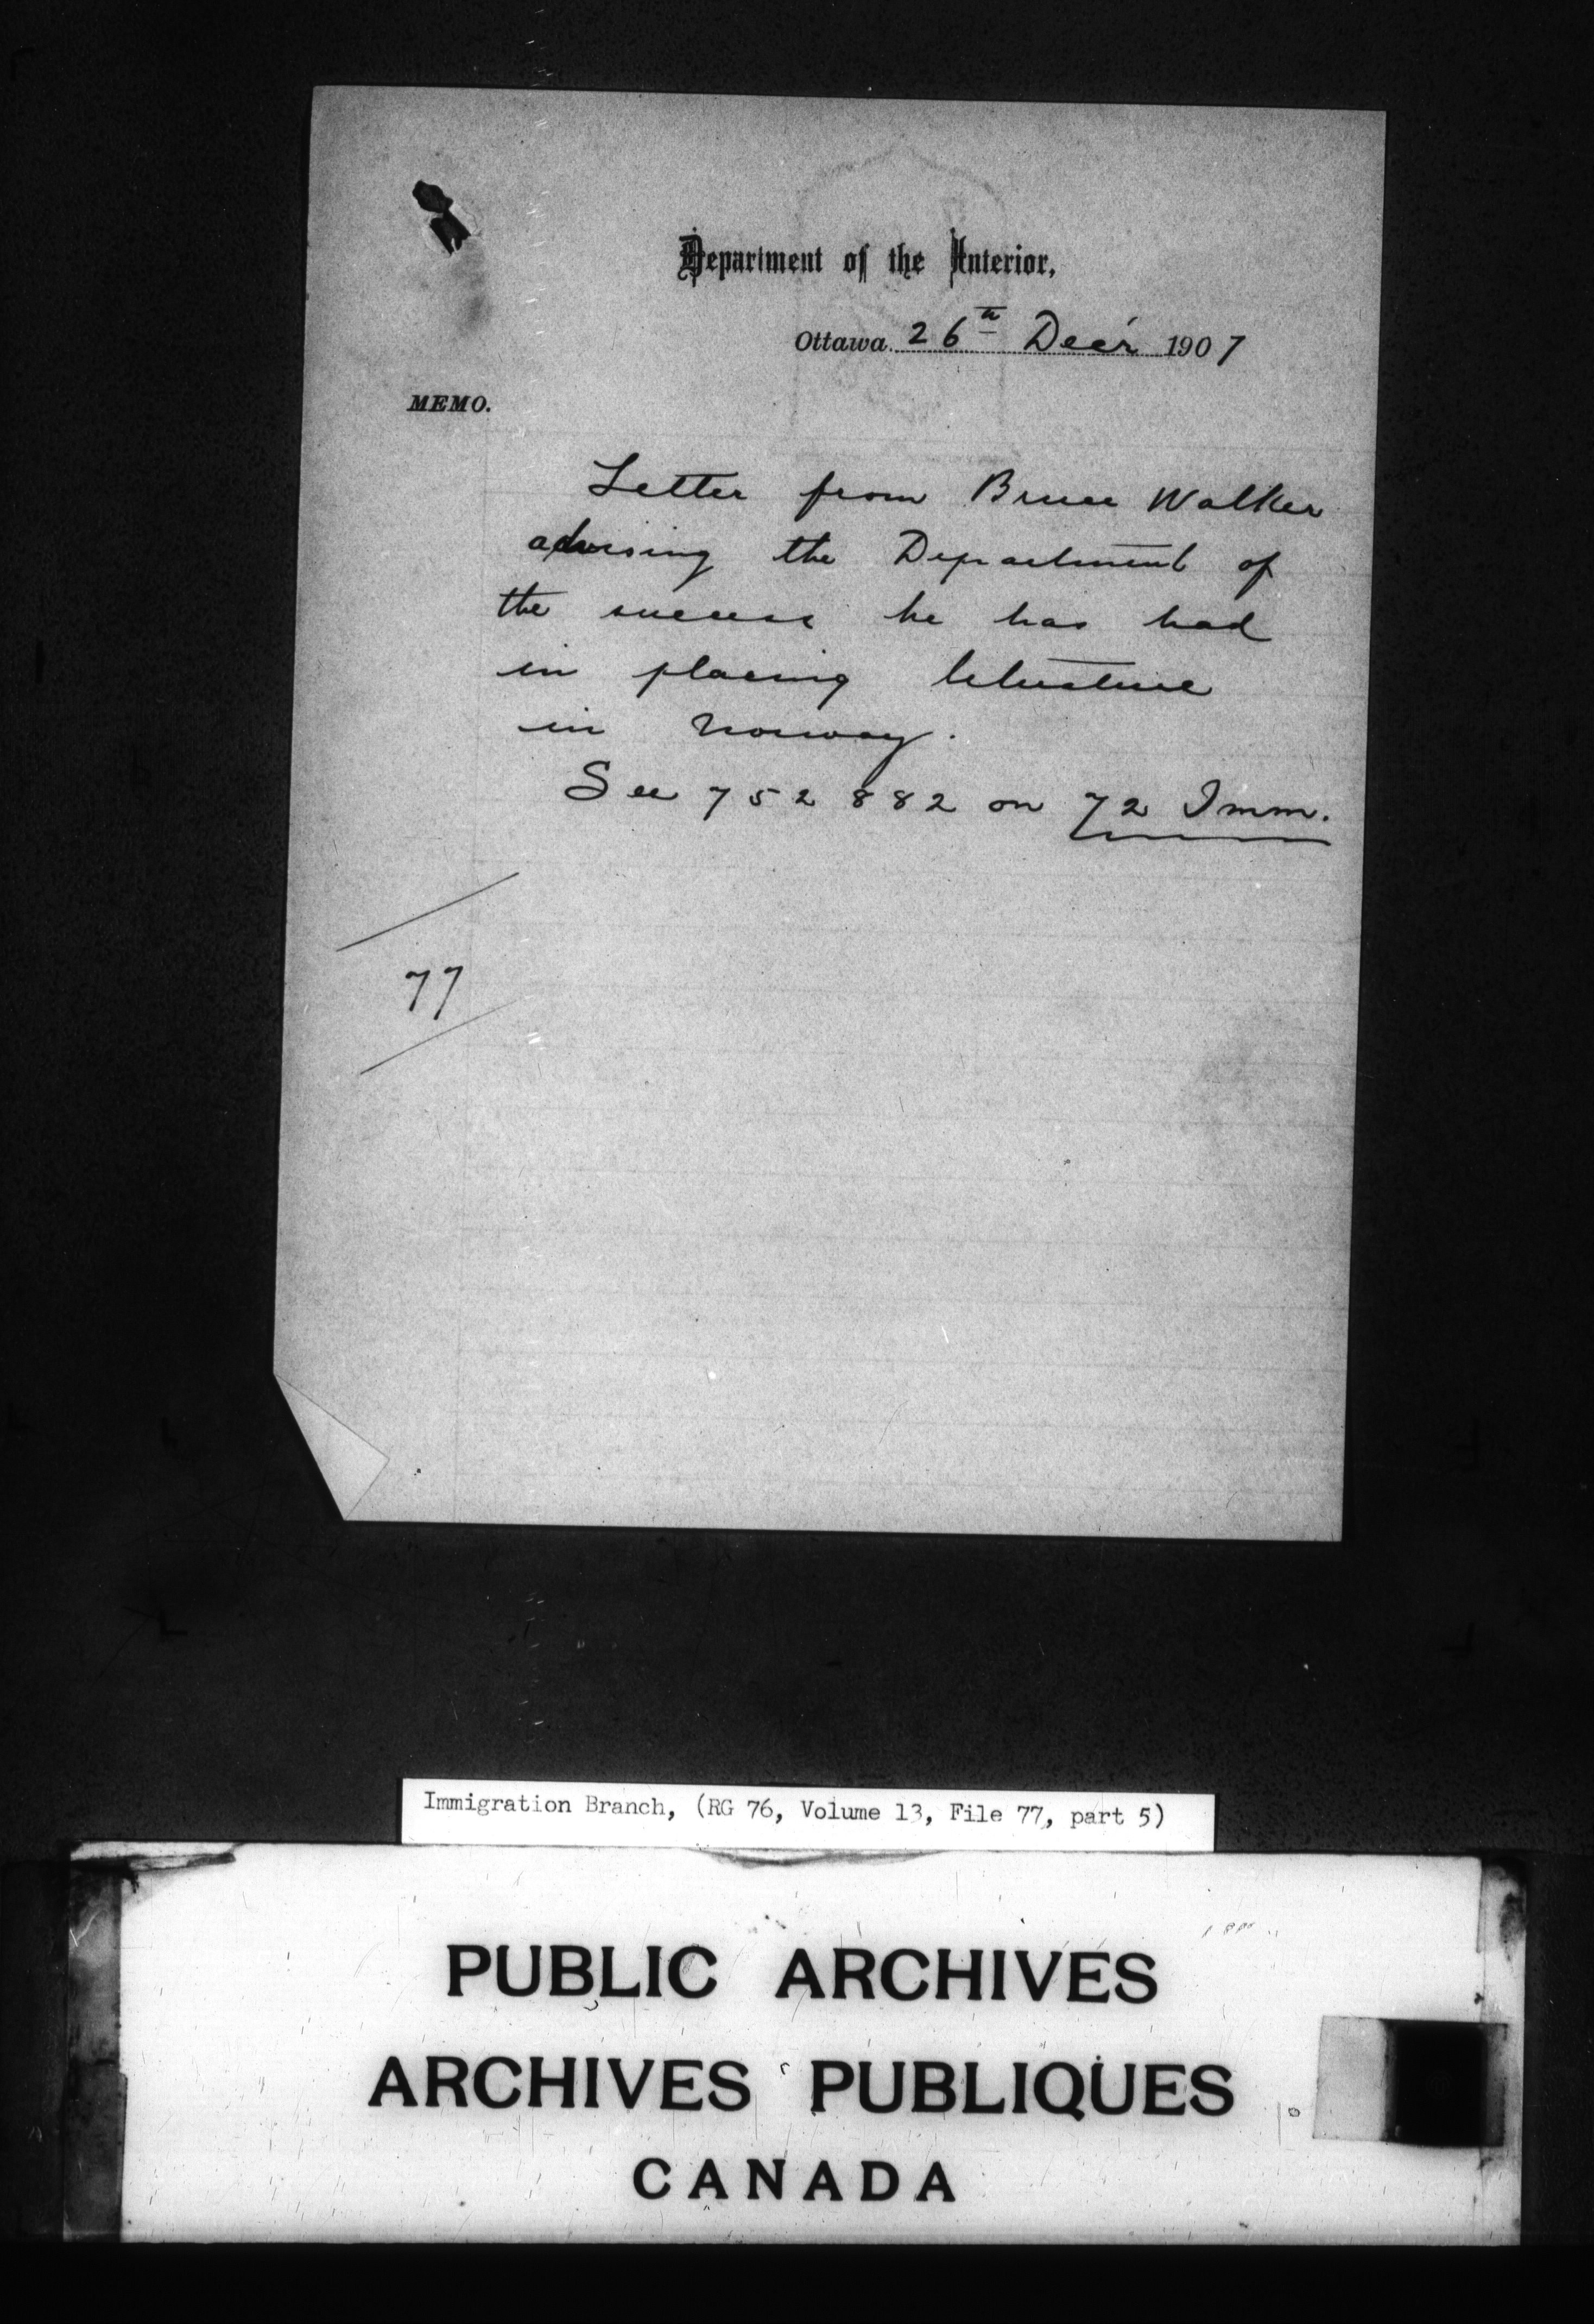 Department of the Interior,
Ottawa 26th Dec'r 1907
MEMO.
Letter from Bruce Walker
advising the Department of
the success he has had
in placing literature
in Norway.
See 752882 on 72 Imm.
77
Immigration Branch, (RG 76, Volume 13, File 77, part 5)
PUBLIC ARCHIVES
ARCHIVES PUBLIQUES
CANADA